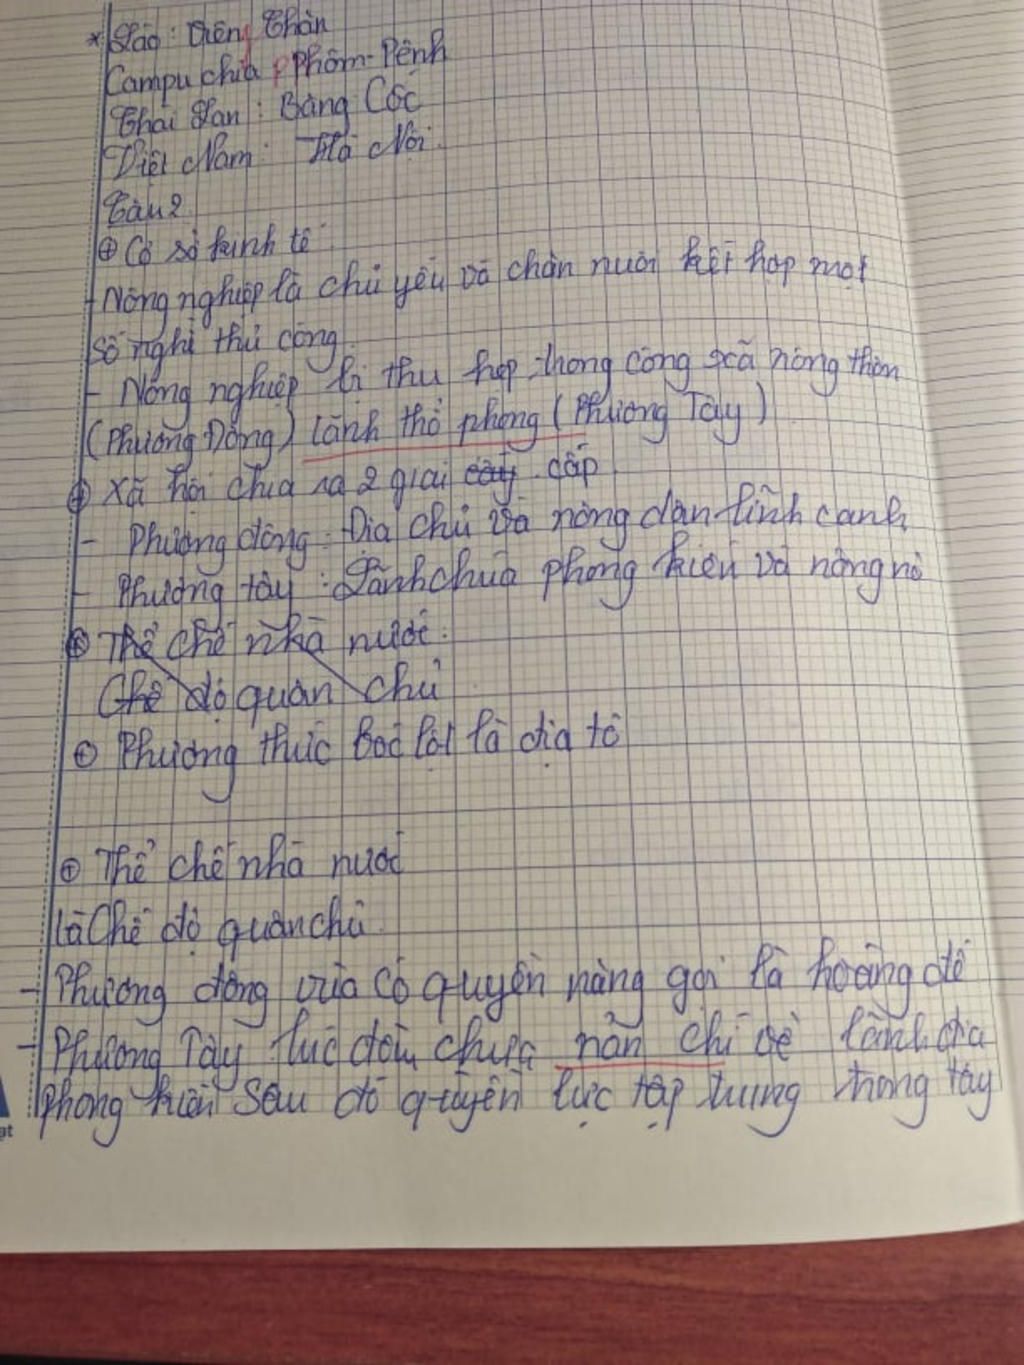 * Lào : Viêng Chăn
Campuchia : Phôm-Pênh
Thai Lan : Băng Cốc
Việt Nam : Hà Nội
Câu 2
⊕ Cơ sở kinh tế
- Nông nghiệp là chủ yếu và chăn nuôi kết hợp một
số nghi thủ công
- Nông nghiệp bị thu hẹp trong công xã nông thôn
(Phương Đông) lãnh thổ phong (Phương Tây)
⊕ Xã hội chia ra 2 giai cấp
- Phương đông : Địa chủ và nông dân lĩnh canh
- Phương tây : Lãnh chúa phong kiến và nông nô
⊕ Thể chế nhà nước :
Chế độ quân chủ
⊕ Phương thức bóc lột là địa tô
⊕ Thể chế nhà nước
là Chế độ quân chủ
- Phương đông vừa có quyền năng gọi là hoàng đế
- Phương Tây lúc đầu chưa nản chí về lãnh địa
phong kiến sau đó quyền lực tập trung trong tay
ạt